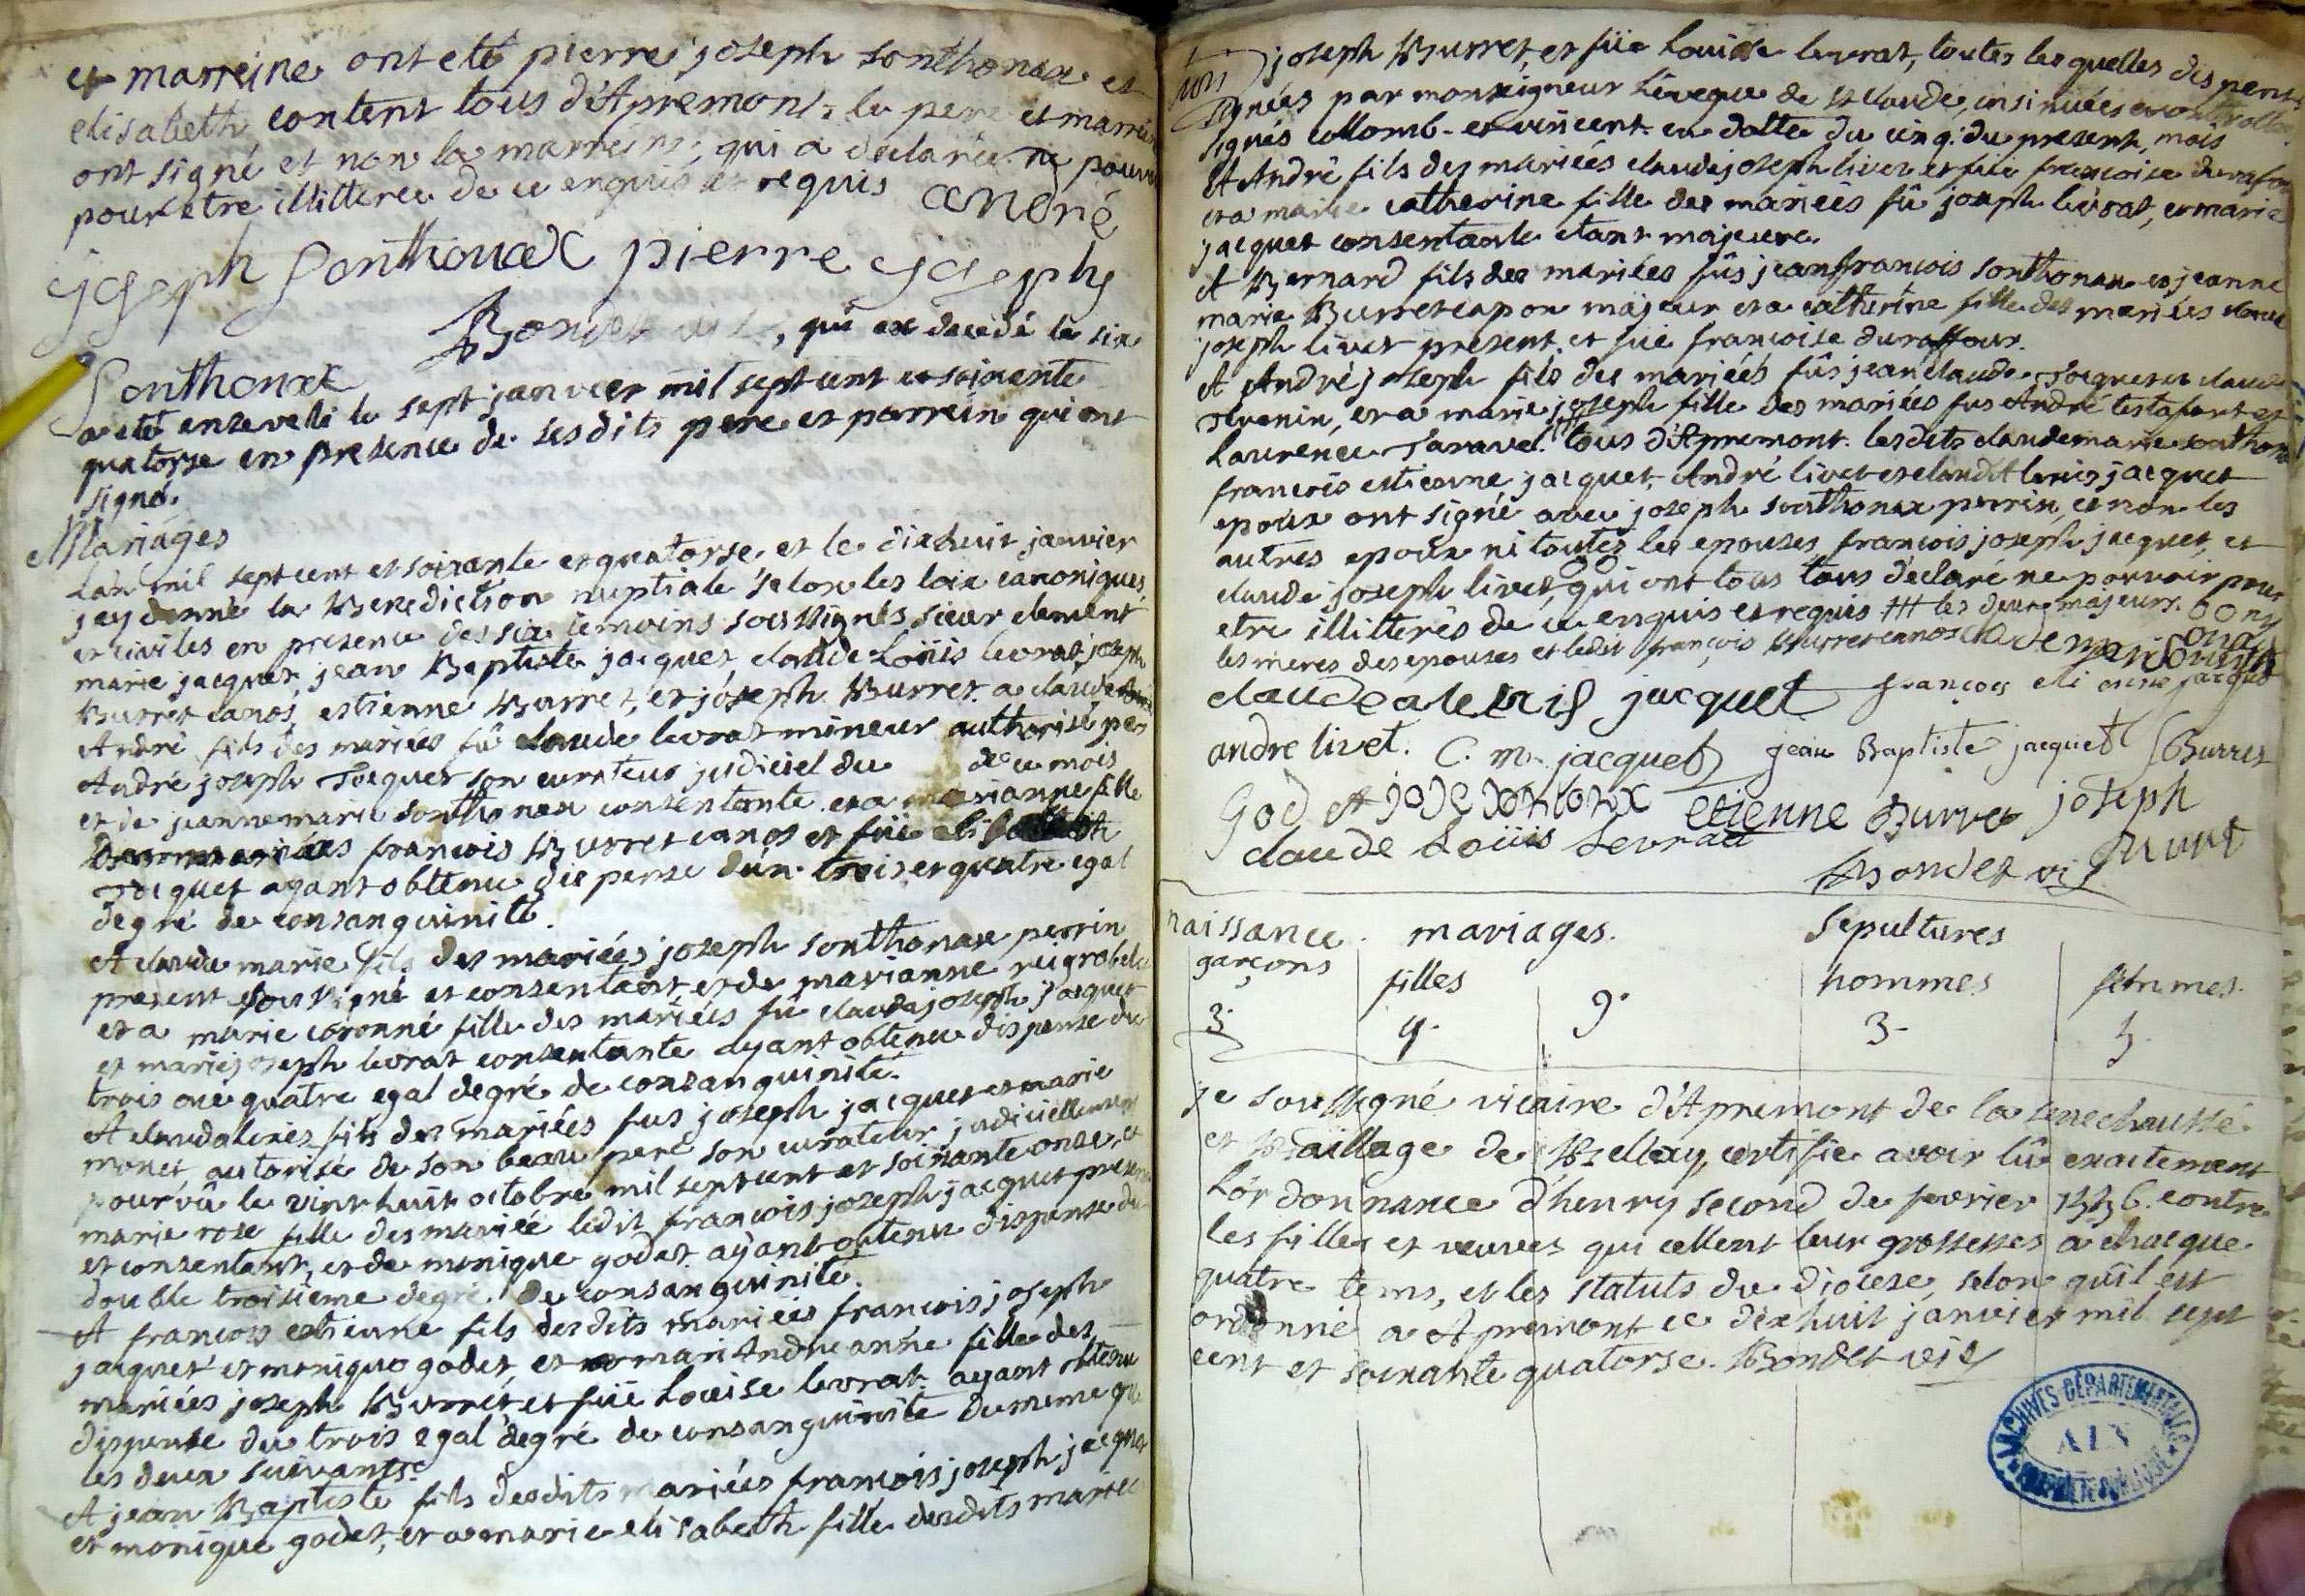 et marreine ont eté pierre joseph sonthonax et
elisabeth content tous d'Apremont. le pere et marrein
ont signé et non la marreine, qui a declarée ne pouvoir
pour etre illitteree de ce enquis et requis andré
joseph Sonthonax pierre joseph
Bondet, qui ex decedé le six
Sonthonax
a eté enseveli le sept janvier mil sept cent et soixante
quatorse en presence de sesdits pere et parrein qui ont
signé.
Mariages
L'an mil sept cent et soixante et quatorse, et le dixhuit janvier
j'ay donné la Benediction nuptiale selon les loix canoniques,
et civiles en presence des six temoins soussignés sieur clement
marie jacquet, jean Baptiste jacquet, claude Loüis levrat, joseph
Burret canos, estienne Burret, et joseph Burret. a claude
André fils des mariées fû claude levrat mineur authorisé par
André joseph Jacquet son curateur judiciel du de ce mois
et de jeanne marie sonthonax consentante et a marianne fille
des mariées francois Burret canos et füe elisabeth
Jacquet ayant obtenu dispense d'un trois et quatre egal
degré de consanguinité.
A claude marie fils des mariées joseph sonthonax perrin
present soussigné et consentant et de marianne reigrobelet
et a marie coronné fille des mariées fû claude joseph jacquet
et marie joseph levrat consentante ayant obtenu dispense du
trois au quatre egal degré de consanguinité.
A claudalexis fils des mariées fus joseph jacquet et marie
monet, autorisé de son beau pere son curateur judiciellement
pourvû le vint huit octobre mil sept cent et soixante onze, et
marie rose fille des mariée ledit francois joseph jacquet present
et consentant, et de monique godet ayant obtenu dispense du
double troisieme degré de consanguinité.
A francois estienne fils desdits mariées francois joseph
jacquet et monique godet, et a mari Andreanne fille des
mariées joseph Burret et füe Louise levrat ayant obtenu
dispense du trois egal degré de consanguinité du meme que
les deux suivants.
A jean Baptiste fils desdits mariées francois joseph jacquet
et monique godet, et a marie elisabeth fille desdits mariées
joseph Burret, et füe Louise levrat, toutes les quelles dispen
sions
signées par monseigneur l'eveque de st claude, insinuées et controllées
signés collomb et vincent en datte du cinq. du present, mois
A André fils des mariées claude joseph livet et füe francoise duraffour
et a marie catherine fille des mariées fû joseph levrat, et marie
jacquet consentante etant majeure.
A Bernard fils des mariées fûs jean francois sonthonax et jeanne
marie Burret capon majeur et a catherine fille des mariées claude
joseph livet present, et füe francoise duraffour.
A André joseph fils des mariées fûs jean claude Jacquet et claudi
Thevenin, et a marie joseph fille des mariées fus André testafort et
Laurence Taravel. tous d'Apremont. lesdits claude marie sonthonax
francois estienne jacquet, André livet et claudalexis jacquet
epoux ont signé avec joseph sonthonax perrin, et non les
autres epoux ni toutes les epouses, francois joseph jacquet, et
claude joseph livet, qui ont tous tous declaré ne pouvoir pour
etre illitterés de ce enquis et requis ### les deux majeurs. Oony
les meres des epouses et ledit francois Burret canos
claudealexis jacquet francois eti enne jacquet
andre livet. C. m. jacquet jean Baptiste jacquet J Burret
etienne Burret joseph
claude Loüis Levrat
Bondet vic Burret
naissance. mariages. Sepultures
garçons filles hommes femmes.
3. 4. 9. 3.
je soussigné vicaire d'Apremont de la senechaussé
et Baillage de Bellay, certifie avoir lû exactement
L'ordonnance d'henry second de fevrier 1556. contre
les filles et veuves qui cellent leur grossesses a chacque
quatre tems, et les statuts du diocese, selon quil est
ordonné a Apremont ce dixhuit janvier mil sept
cent et soixante quatorse. Bondet vic
ARCHIVES DÉPARTEMENTALES
AIN